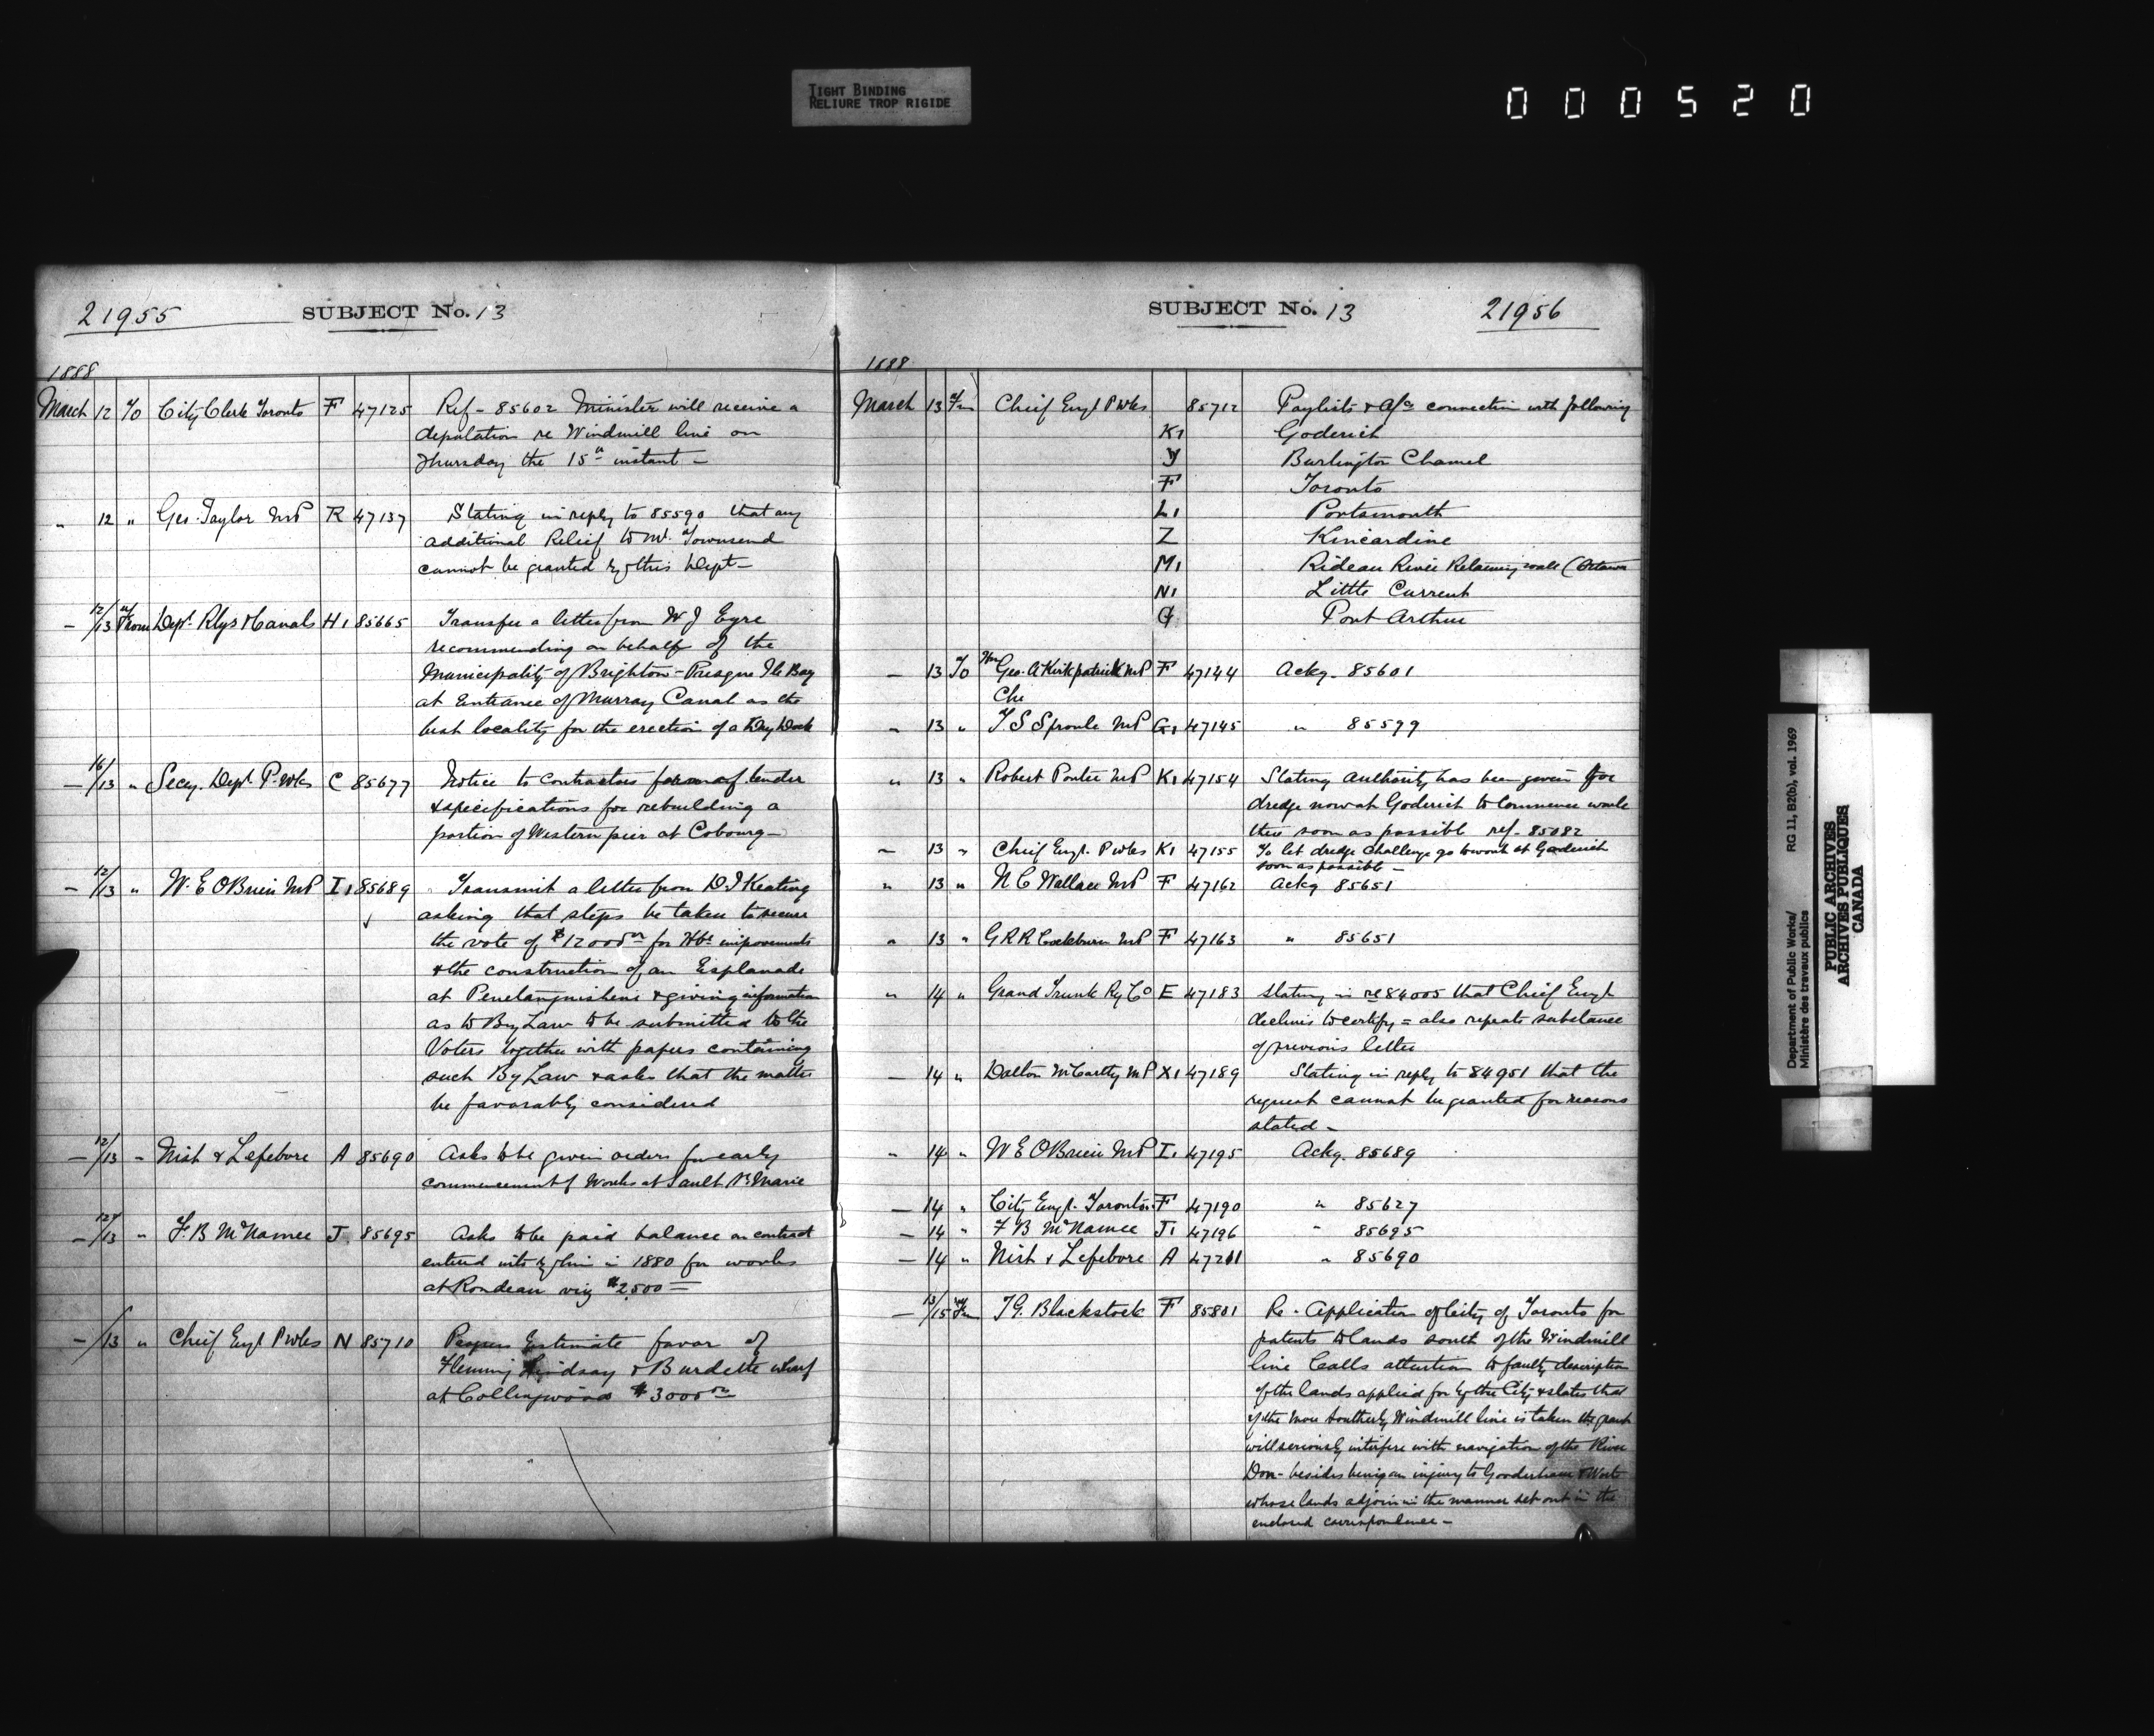 TIGHT BINDING
RELIURE TROP RIGIDE
000520
21955 SUBJECT No. 13
1888
March 12 To City Clerk Toronto F 47125 Ref - 85602 Minister will receive a
deputation re Windmill line on
Thursday the 15th instant -
" 12 " Geo. Taylor MP R 47137 Stating in reply to 85590 that any
additional Relief to Mr. Townsend
cannot be granted by this Dept -
- 12/13 From Dept. Rlys & Canals H1 85665 Transfer a letter from W J Eyre
recommending on behalf of the
Municipality of Brighton - Presque Ile Bay
at Entrance of Murray Canal as the
best locality for the erection of a Dry Dock
- 16/13 " Secy. Dept. P. Wks C 85677 Notice to contractors form of tender
& specifications for rebuilding a
portion of Western pier at Cobourg -
- 12/13 " W. E OBrien MP I1 85689 Transmit a letter from D. J Keating
asking that steps be taken to secure
the vote of $12000 00 for Hbr improvements
& the construction of an Esplanade
at Penetanguishene & giving information
as to By Law to be submitted to the
Voters together with papers containing
such By Law & asks that the matter
be favorably considered
- 12/13 " Nish & Lefebvre A 85690 Asks to be given orders for early
commencement of Works at Sault St. Marie
- 12/13 " F. B McNamee J 85695 Asks to be paid balance on contract
entered into by him in 1880 for works
at Rondeau viz $2500 =
- /13 " Chief Engr P Wks N 85710 Estimate favor of
Fleming Lindsay & Burdette wharf
at Collingwood $3000 00
SUBJECT No. 13 21956
1888
March 13 Fm Chief Engr P Wks 85712 Paylists & a/cs connection with following
K1 Goderich
Y Burlington Channel
F Toronto
L1 Portsmouth
Z Kincardine
M1 Rideau River Retaining wall (Ottawa
N1 Little Current
G Port Arthur
- 13 To Hon Geo. A Kirkpatrick MP F 47144 Ackg. 85601
Che
- 13 " T. S Sproule MP G1 47145 " 85599
" 13 " Robert Porter MP K1 47154 Stating authority has been given for
dredge now at Goderich to Commence work
there soon as possible ref - 85082
- 13 " Chief Engr. P Wks K1 47155 To let dredge Challenge go to work at Goderich
soon as possible -
" 13 " N C Wallace MP F 47162 Ackg 85651
" 13 " G R R Cockburn MP F 47163 " 85651
" 14 " Grand Trunk Ry Co E 47183 Stating in re 84005 that Chief Engr
declines to certify = also repeats substance
of previous letter
- 14 " Dalton McCarthy MP X1 47189 Stating in reply to 84951 that the
request cannot be granted for reasons
stated -
" 14 " W E OBrien MP I1 47195 Ackg. 85689
- 14 " City Engr. Toronto F 47190 " 85627
- 14 " F B McNamee J1 47196 " 85695
- 14 " Nish & Lefebvre A 47201 " 85690
- 13/15 Fm T G. Blackstock F 85801 Re - Application of City of Toronto for
patents to lands south of the Windmill
line Calls attention to faulty description
of the lands applied for by the City & states that
if the more Southerly Windmill line is taken the grant
will seriously interfere with navigation of the River
Don - besides being an injury to Gooderham & Worts
whose lands adjoin in the manner set out in the
enclosed correspondence -
Department of Public Works/ RG 11, B2(b), vol. 1969
Ministère des travaux publics
PUBLIC ARCHIVES
ARCHIVES PUBLIQUES
CANADA